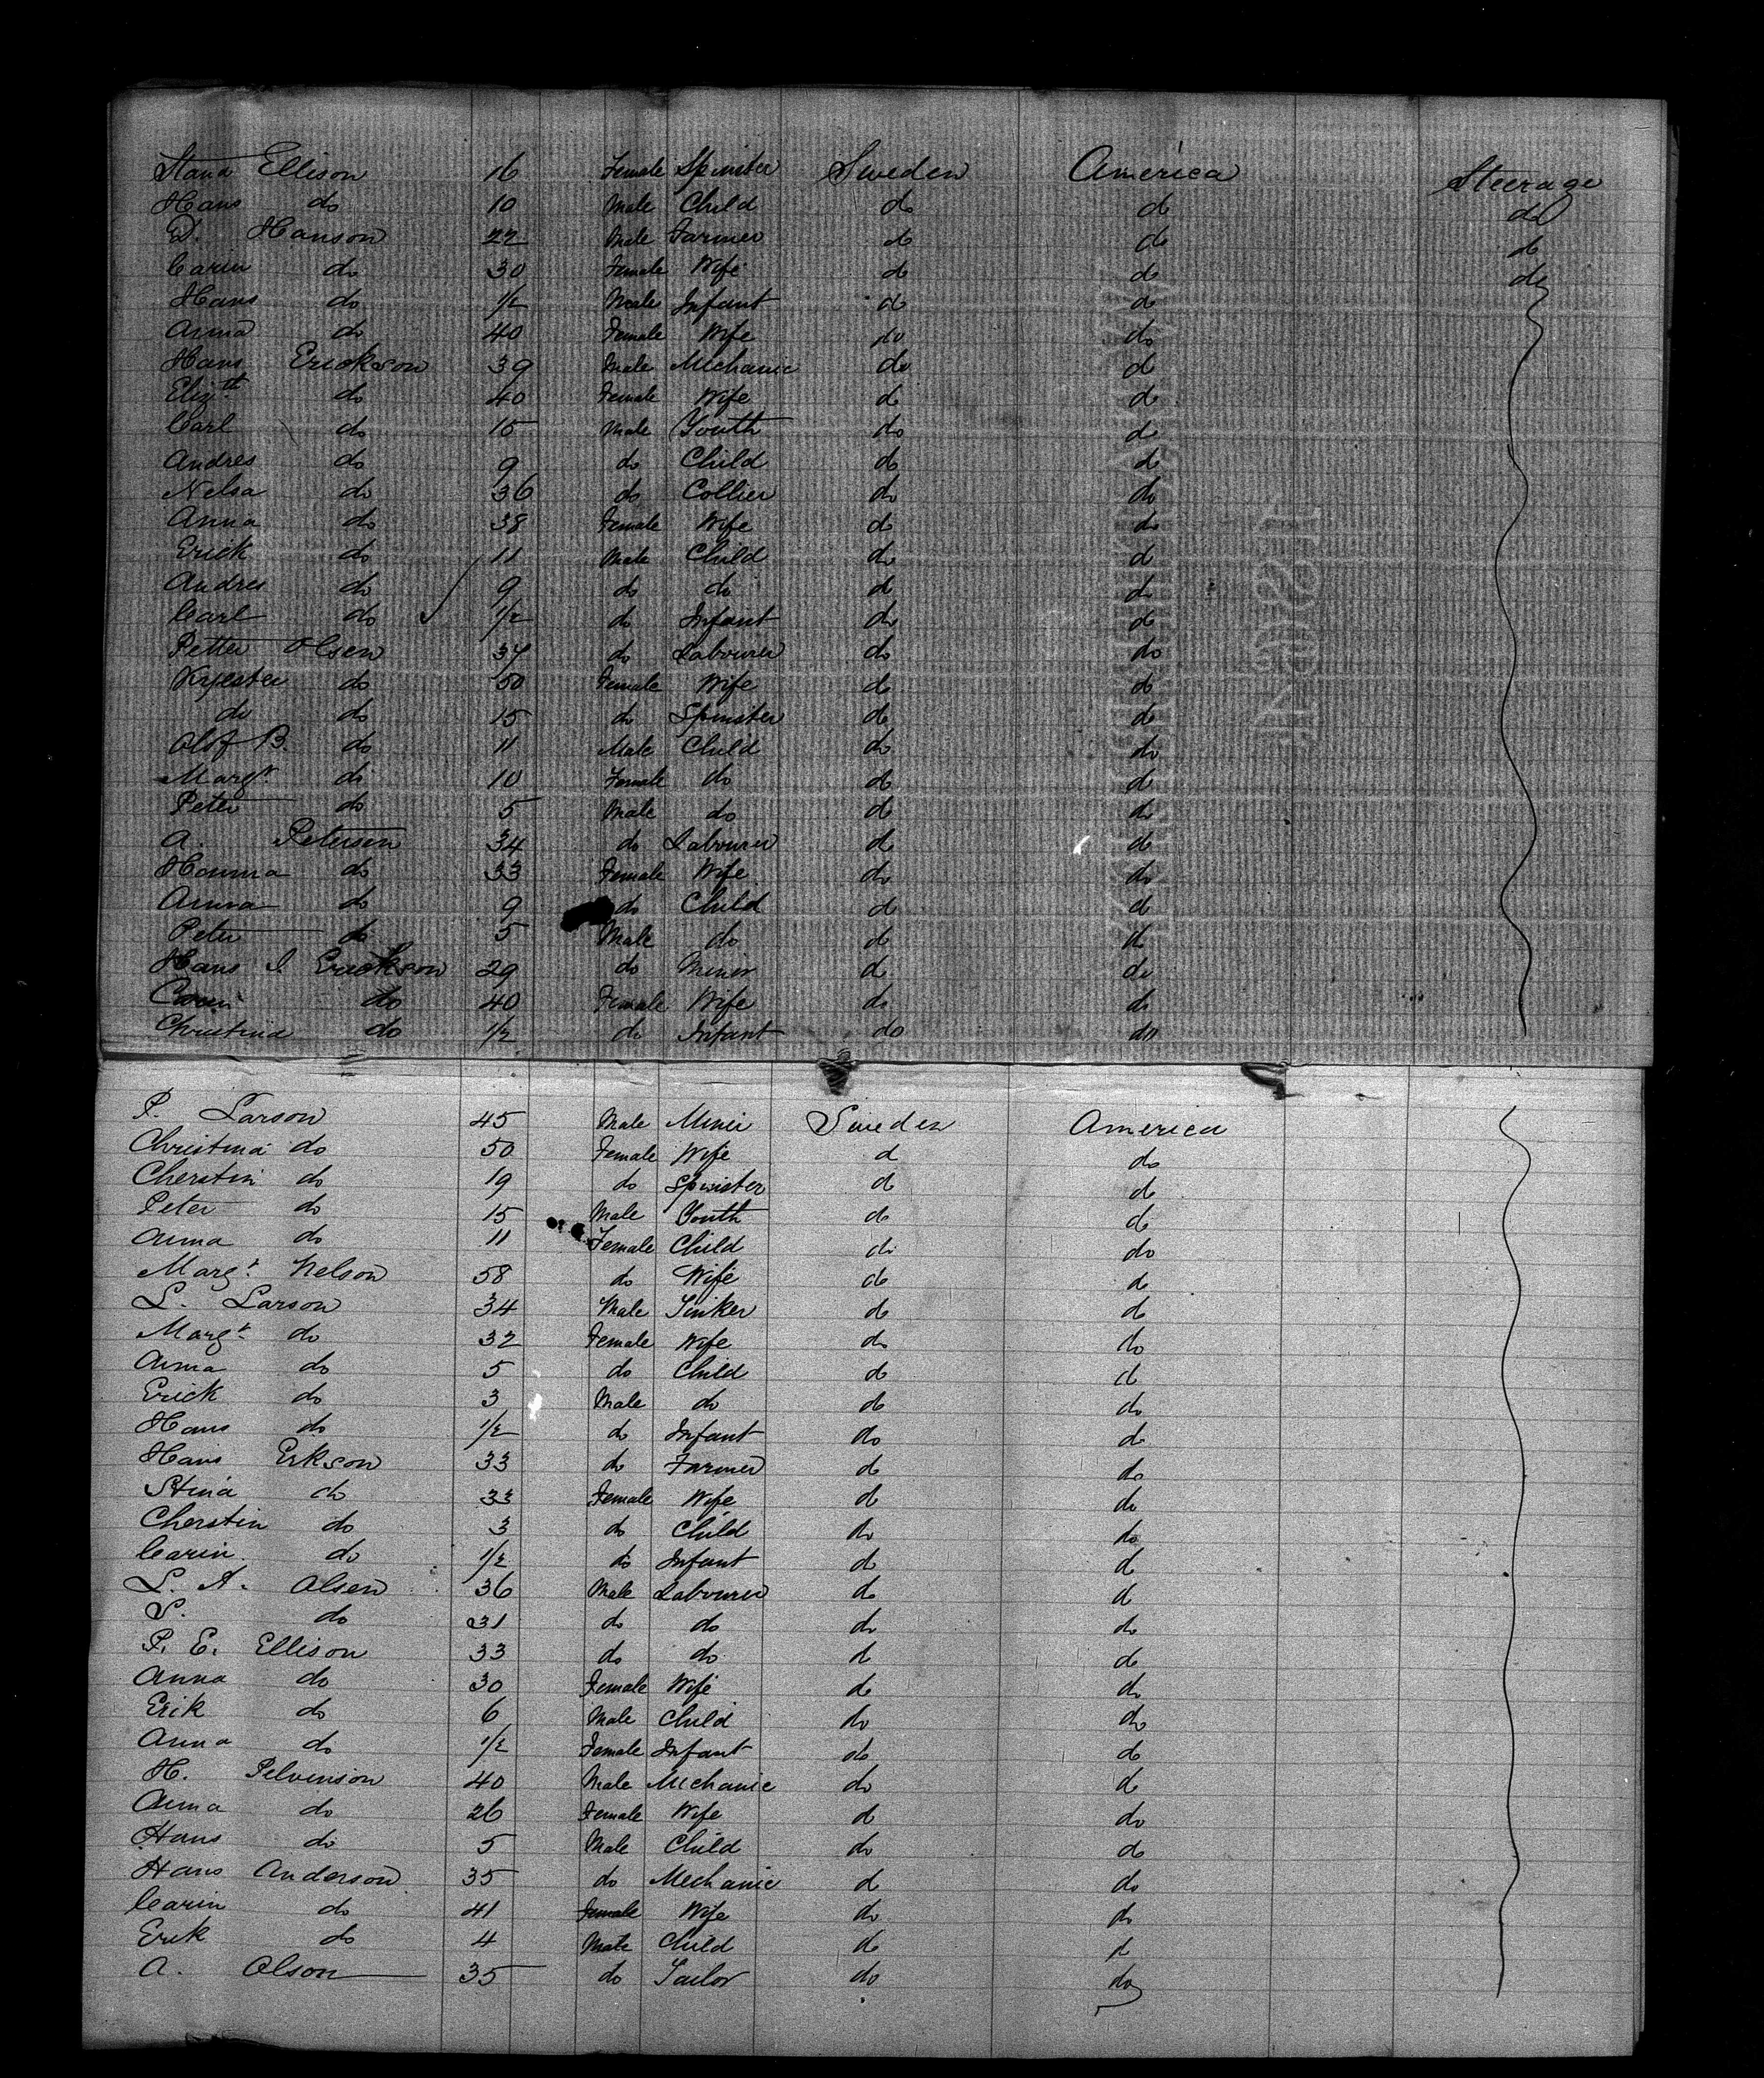 Stana Ellison 16 Female Spinster Sweden America Steerage
Hans do 10 Male Child do do do
D. Hanson 22 Male Farmer do do do
Carin do 30 Female Wife do do do
Hans do 1/2 Male Infant do do
Anna do 40 Female Wife do do
Hans Erickson 39 Male Mechanic do do
Elizth do 40 Female Wife do do
Carl do 15 Male Youth do do
Andres do 9 do Child do do
Nelsa do 36 do Collier do do
Anna do 38 Female Wife do do
Erick do 11 Male Child do do
Andres do 9 do do do do
Carl do 1/2 do Infant do do
Petter Olsen 37 do Labourer do do
Kyester do 50 Female Wife do do
do do 15 do Spinster do do
Olof B. do 11 Male Child do do
Margt do 10 Female do do do
Peter do 5 Male do do do
A. Petersen 34 do Labourer do do
Hanna do 33 Female Wife do do
Anna do 9 do Child do do
Peter do 5 Male do do do
Hans I Erickson 29 do Miner do do
do 40 Female Wife do do
Christina do 1/2 do Infant do do
P. Larson 45 Male Miner Sweden America
Christina do 50 Female Wife do do
Cherstin do 19 do Spinster do do
Peter do 15 Male Youth do do
Anna do 11 Female Child do do
Margt. Nelson 58 do Wife do do
L. Larson 34 Male Tinker do do
Margt do 32 Female Wife do do
Anna do 5 do Child do do
Erick do 3 Male do do do
Hans do 1/2 do Infant do do
Hans Erkson 33 do Farmer do do
Stina do 33 Female Wife do do
Cherstin do 3 do Child do do
Carin do 1/2 do Infant do do
L. A. Olsen 36 Male Labourer do do
do 31 do do do do
P. E. Ellison 33 do do do do
Anna do 30 Female Wife do do
Erik do 6 Male Child do do
Anna do 1/2 Female Infant do do
H. Pelvenson 40 Male Mechanic do do
Anna do 26 Female Wife do do
Hans do 5 Male Child do do
Hans Anderson 35 do Mechanic do do
Carin do 41 Female Wife do do
Erik do 4 Male Child do do
A. Olson 35 do Tailor do do